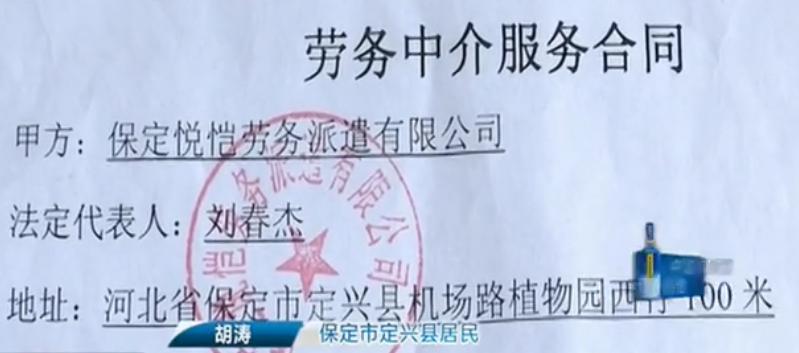 劳务中介服务合同
甲方：保定悦恺劳务派遣有限公司
法定代表人：刘春杰
地址：河北省保定市定兴县机场路植物园西行100米
恺劳务派遣有限公司
胡涛 保定市定兴县居民